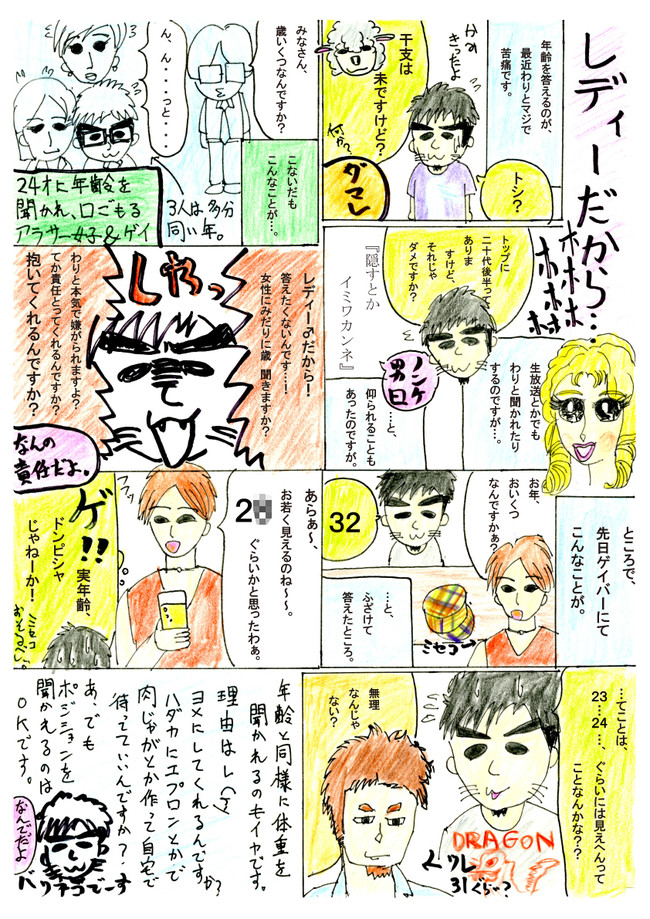 レディーだから…
ホホホ
ホホホ
ホホ
年齢を答えるのが、
最近わりとマジで
苦痛です。
トシ？
かみ
きったよ
干支は
未ですけど？
何か？
ダマレ
みなさん、
歳いくつなんですか？
ん、ん・・・っと・・・
こないだも
こんなことが…。
24才に年齢を
聞かれ、口ごもる
アラサー女子&ゲイ
3人は多分
同い年。
トップに
二十代後半って
ありま
すけど、
それじゃ
ダメですか？
『隠すとか
イミワカンネ』
ノンケ
男日
生放送とかでも
わりと聞かれたり
するのですが…。
…と、
仰られることも
あったのですが。
しゃぁっ
レディー♂だから！
答えたくないんです…！
女性にみだりに歳 聞きますか？
わりと本気で嫌がられますよ？
てか責任とってくれるんですか？
抱いてくれるんですか？
なんの
責任だよ。
ところで、
先日ゲイバーにて
こんなことが。
お年、
おいくつ
なんですかぁ？
32
…と、
ふざけて
答えたところ。
ミセコ→
あらぁ〜、
お若く見えるのね〜〜。
2
ぐらいかと思ったわぁ。
ゲ!!
実年齢、
ドンピシャ
じゃねーか！
ミセコ
おそるべし。
…てことは、
23…24…、ぐらいには見えへんって
ことなんかな？？
無理
なんじゃ
ない？
DRAGON
ワレ
31ぐらい？
年齢と同様に体重を
聞かれるのもイヤです。
理由はしへ(ry
ヨメにしてくれるんですか？
ハダカにエプロンとかで
肉じゃがとか作って自宅で
待ってていいんですか？
あ、でも
ポジションを
聞かれるのは
OKです。
なんでだよ
ベリネコでーす